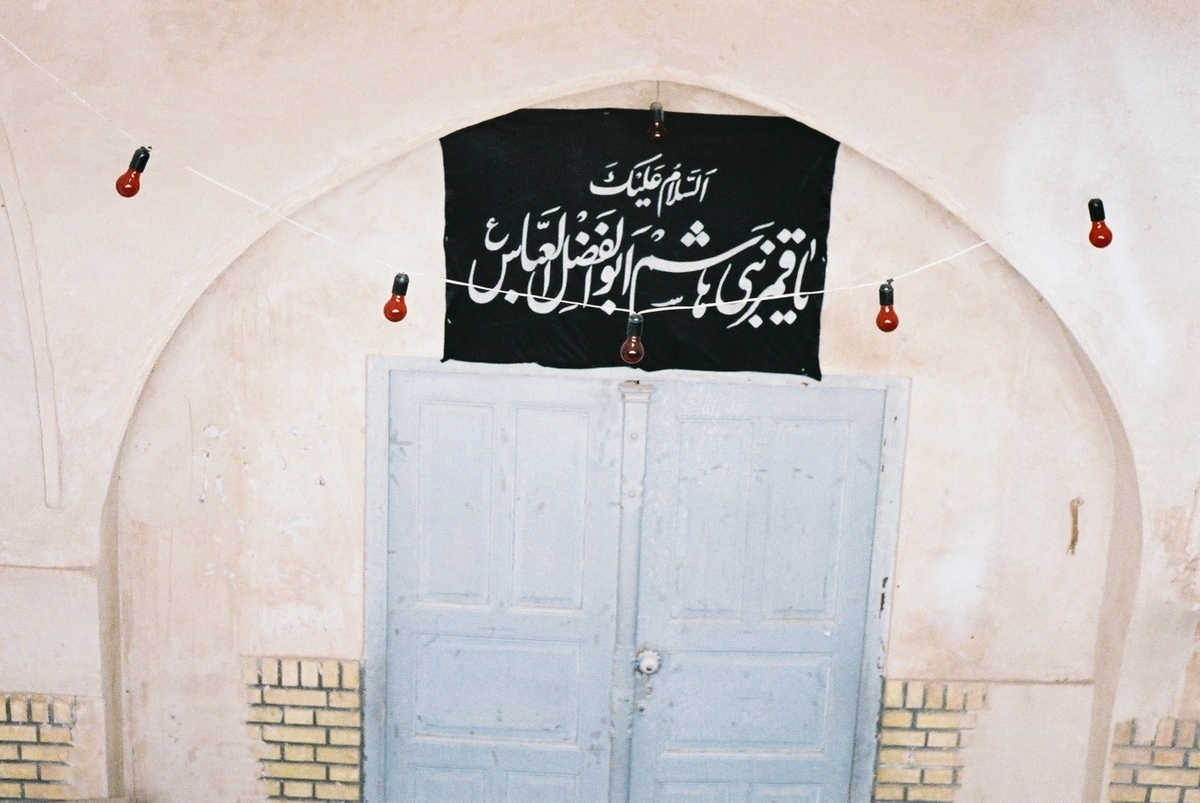 اَلسَّلامُ عَلَیْكَ
یا قمر بَنی هاشِم اَبوالفَضْلِ العَبّاس ع